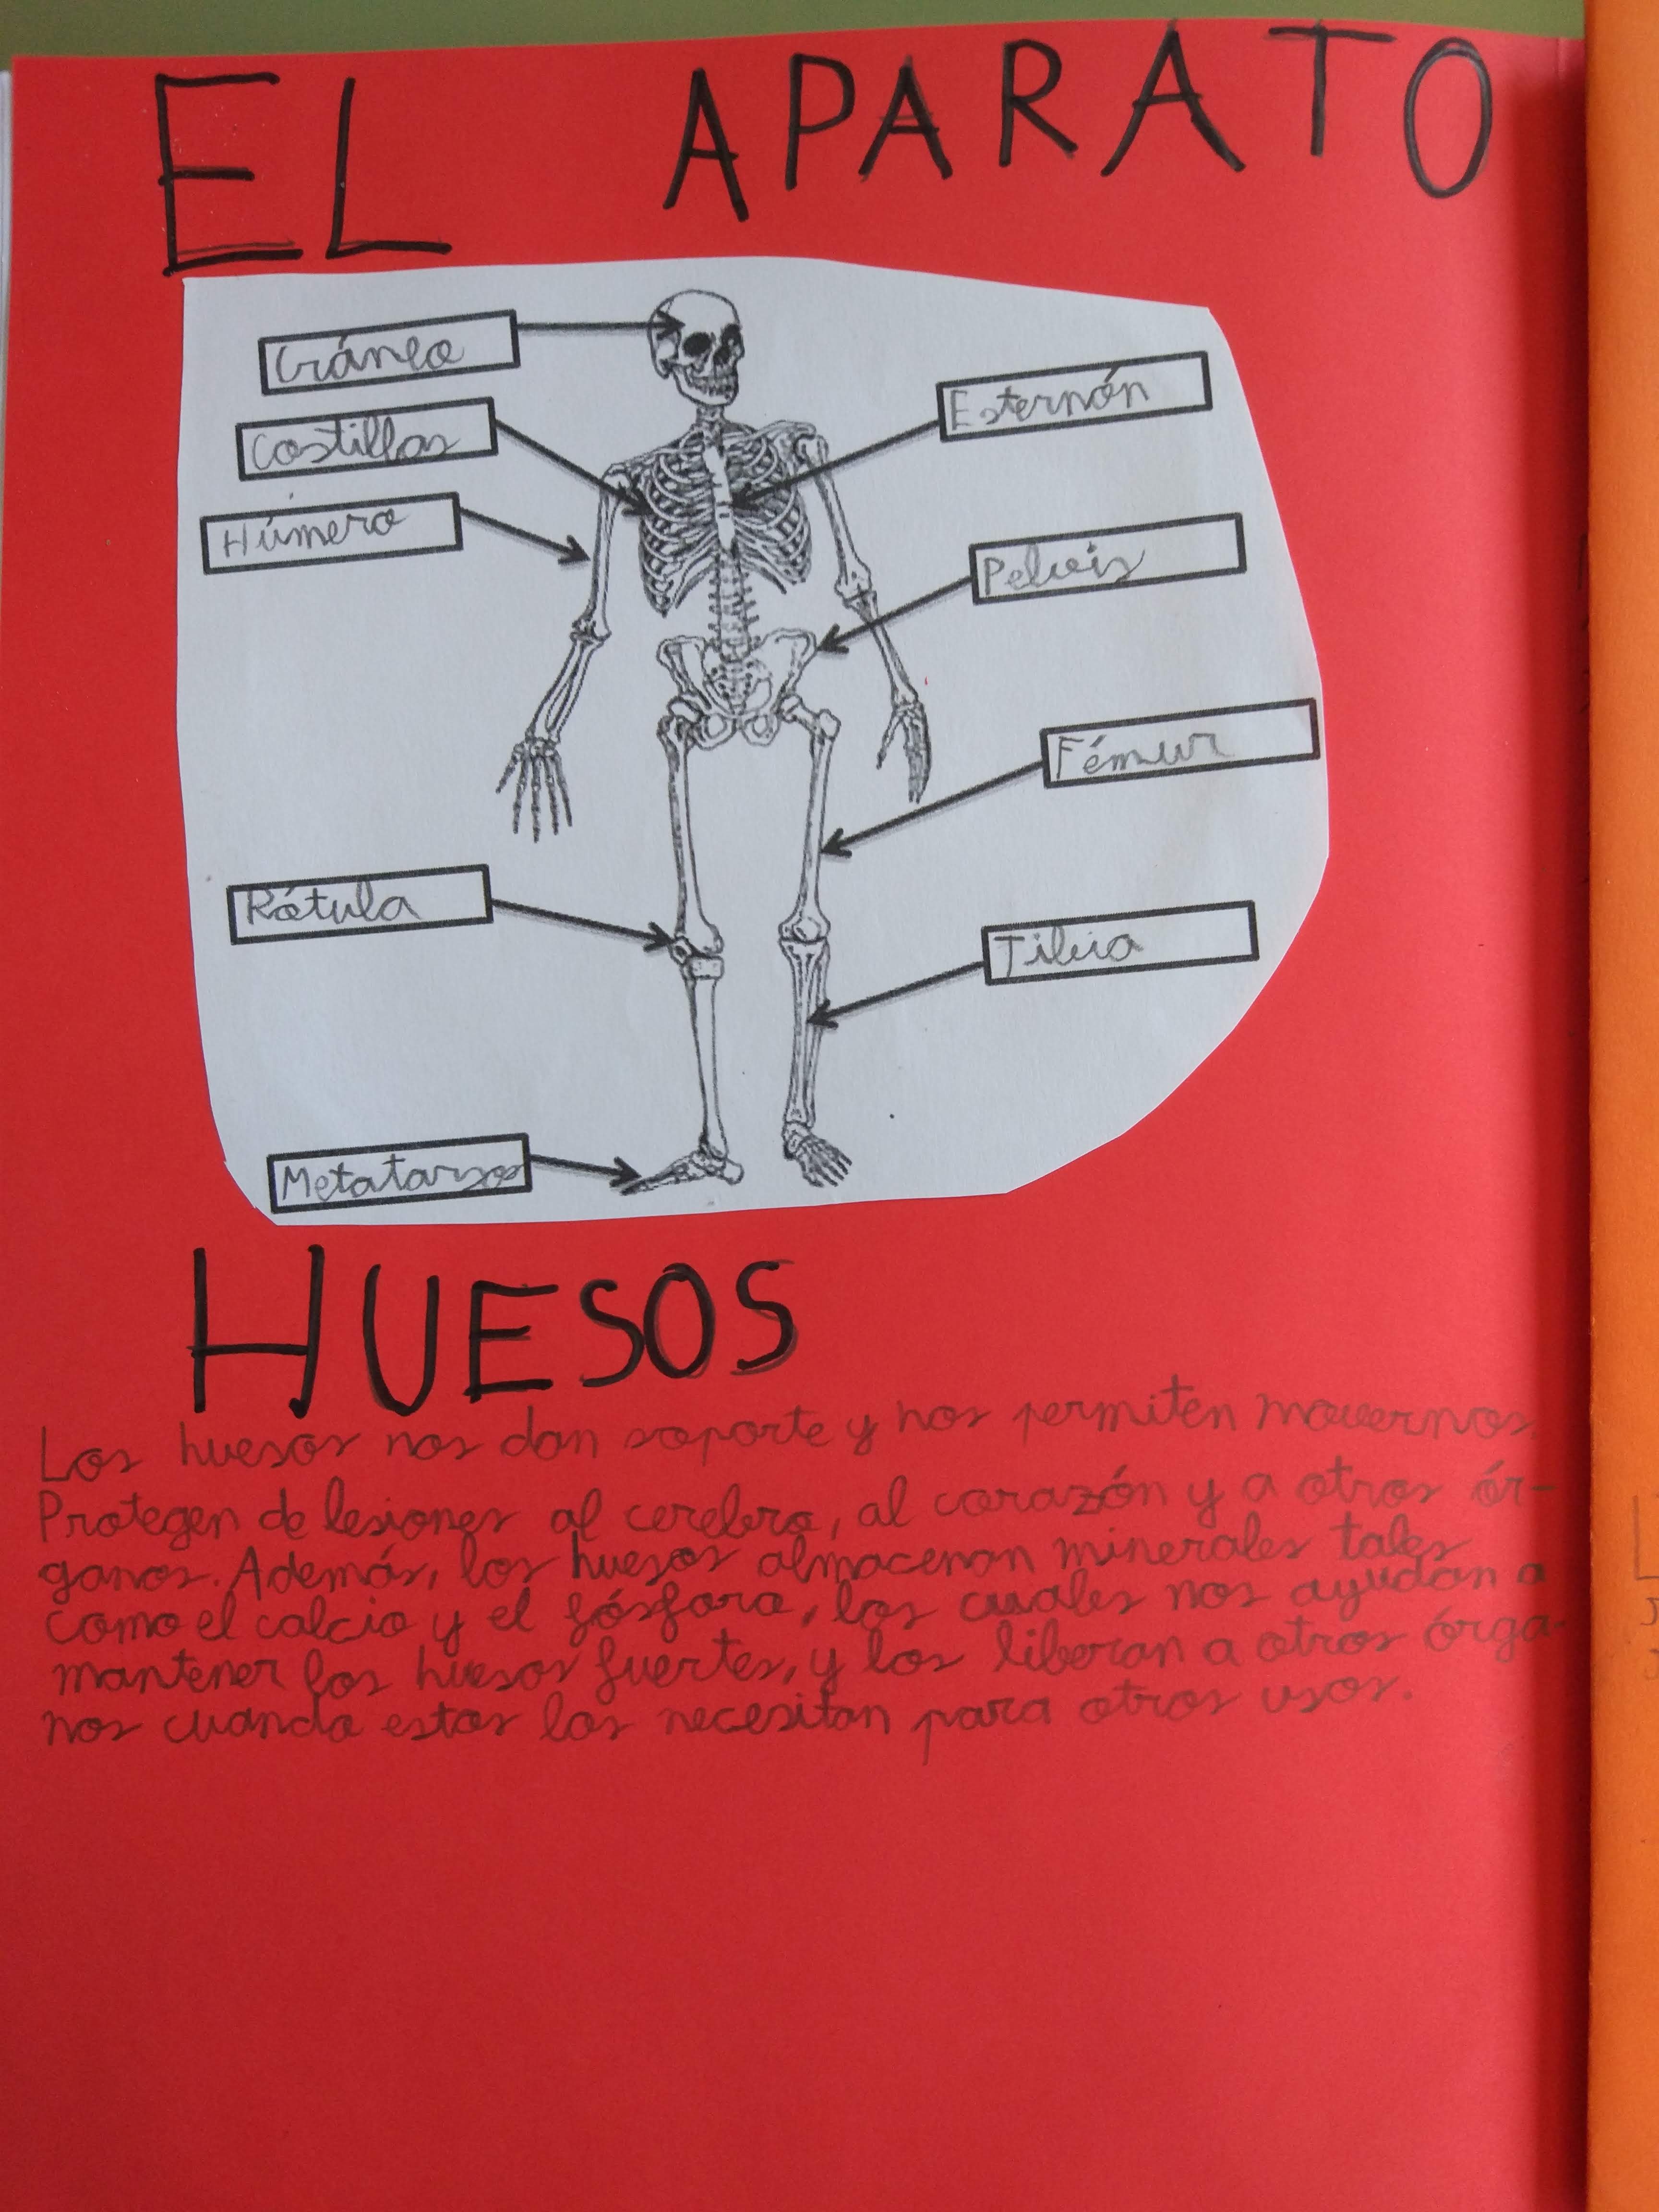 EL APARATO
Cráneo
Costillas
Húmero
Esternón
Pelvis
Fémur
Rótula
Tibia
Metatarsos
HUESOS
Los huesos nos dan soporte y nos permiten movernos.
Protegen de lesiones al cerebro, al corazón y a otros ór-
ganos. Además, los huesos almacenan minerales tales
como el calcio y el fósforo, los cuales nos ayudan a
mantener los huesos fuertes, y los liberan a otros órga-
nos cuando estos los necesitan para otros usos.